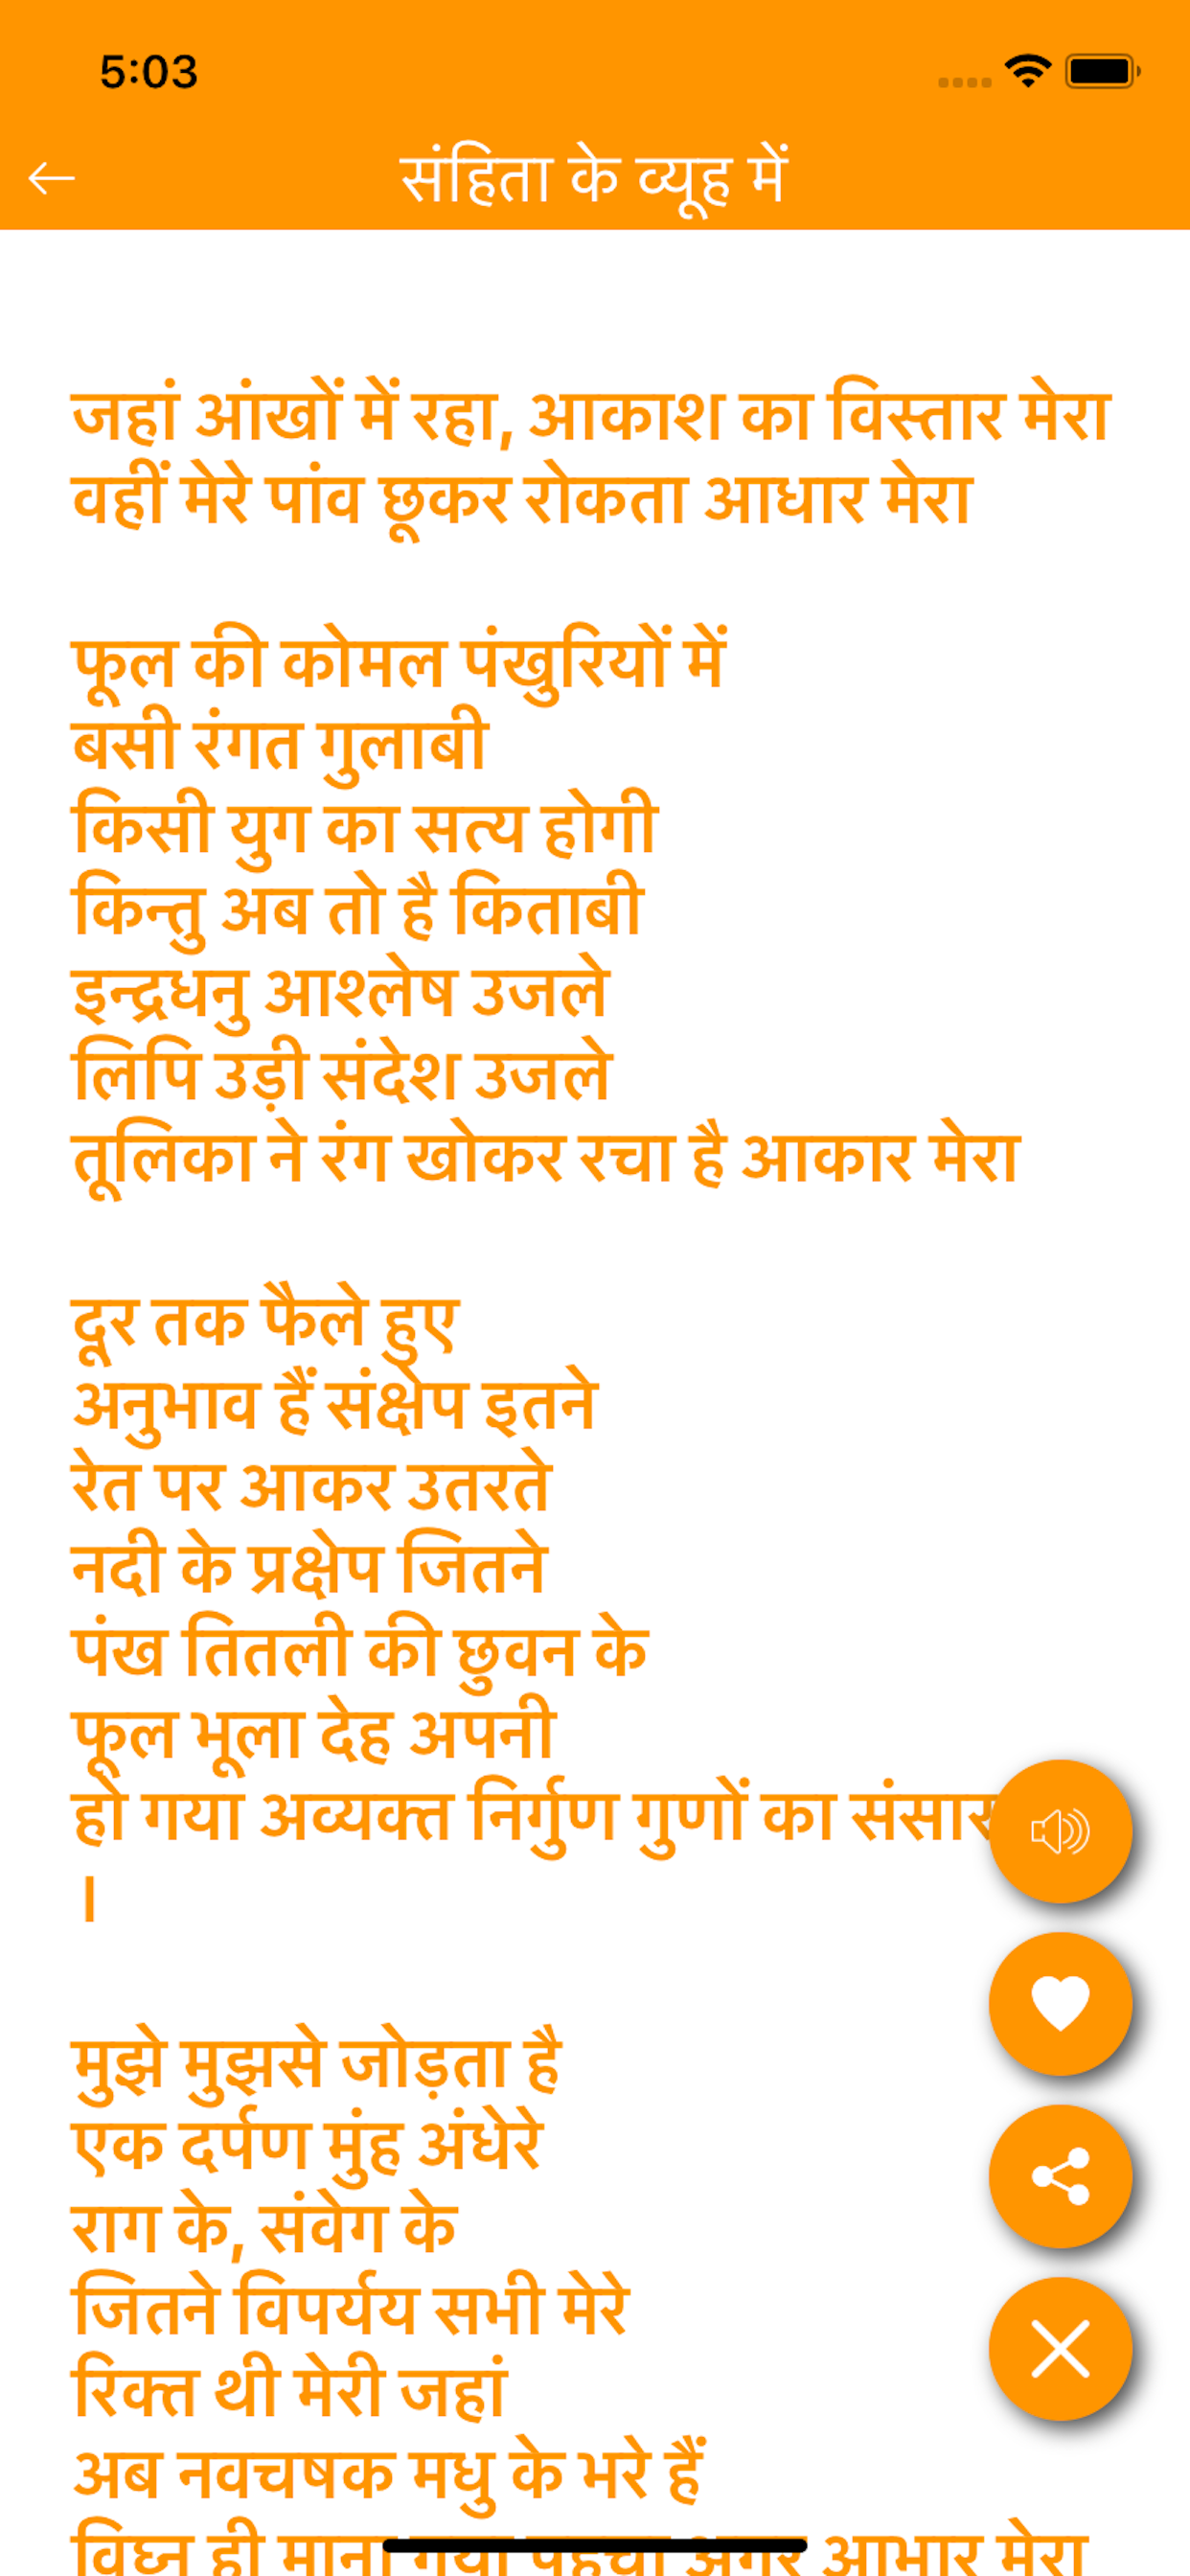 5:03
संहिता के व्यूह में
जहां आंखों में रहा, आकाश का विस्तार मेरा
वहीं मेरे पांव छूकर रोकता आधार मेरा
फूल की कोमल पंखुरियों में
बसी रंगत गुलाबी
किसी युग का सत्य होगी
किन्तु अब तो है किताबी
इन्द्रधनु आश्लेष उजले
लिपि उड़ी संदेश उजले
तूलिका ने रंग खोकर रचा है आकार मेरा
दूर तक फैले हुए
अनुभाव हैं संक्षेप इतने
रेत पर आकर उतरते
नदी के प्रक्षेप जितने
पंख तितली की छुवन के
फूल भूला देह अपनी
हो गया अव्यक्त निर्गुण गुणों का संसार
।
मुझे मुझसे जोड़ता है
एक दर्पण मुंह अंधेरे
राग के, संवेग के
जितने विपर्यय सभी मेरे
रिक्त थी मेरी जहां
अब नवचषक मधु के भरे हैं
विघ्न ही माना गया पहुंचा अगर आभार मेरा